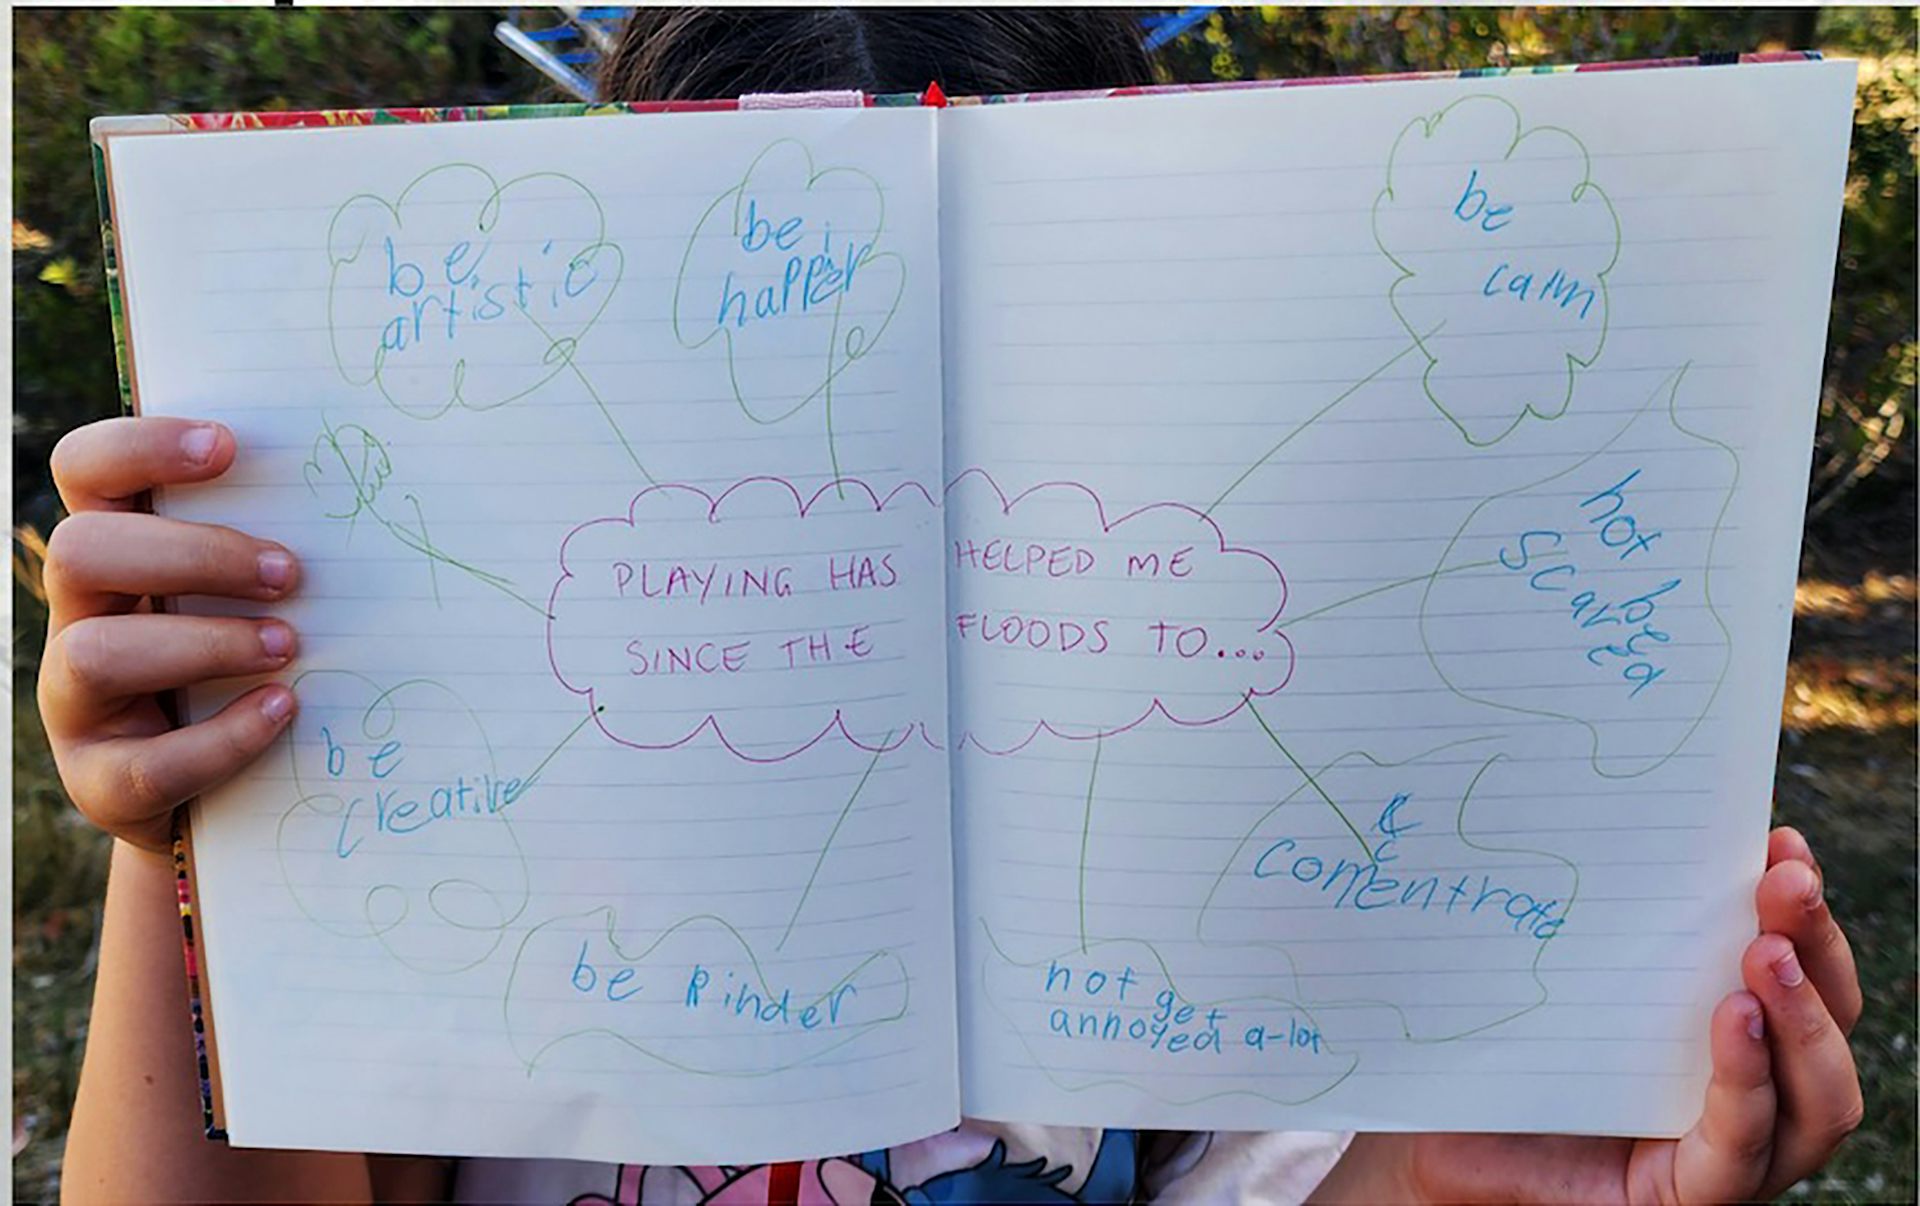 be
artistic
be
happier
be
calm
PLAYING HAS HELPED ME
SINCE THE FLOODS TO...
not
be
scared
be
creative
concentrate
be kinder
not get
annoyed a-lot